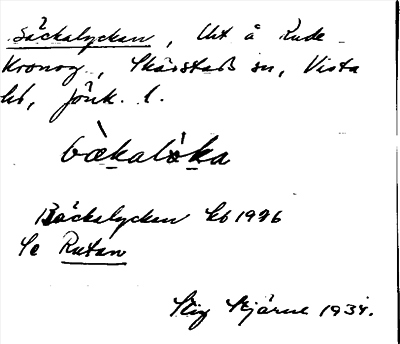 Bäckalyckan, Utå Rude
Kronog, Skärstads sn, Vista
hd, Jönk. l.
bækalöka
Bäckalyckan Eb 1926
Se Rutan
Stig Stjärne 1934.